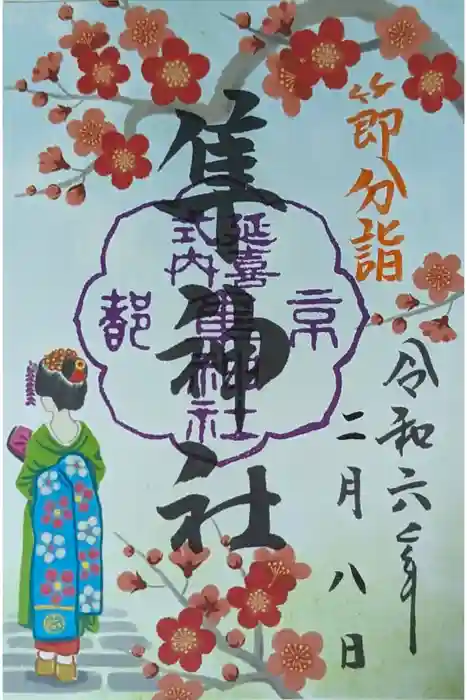 節分詣
令和六年
二月八日
隼神社
延喜
式内
京
都
隼神社